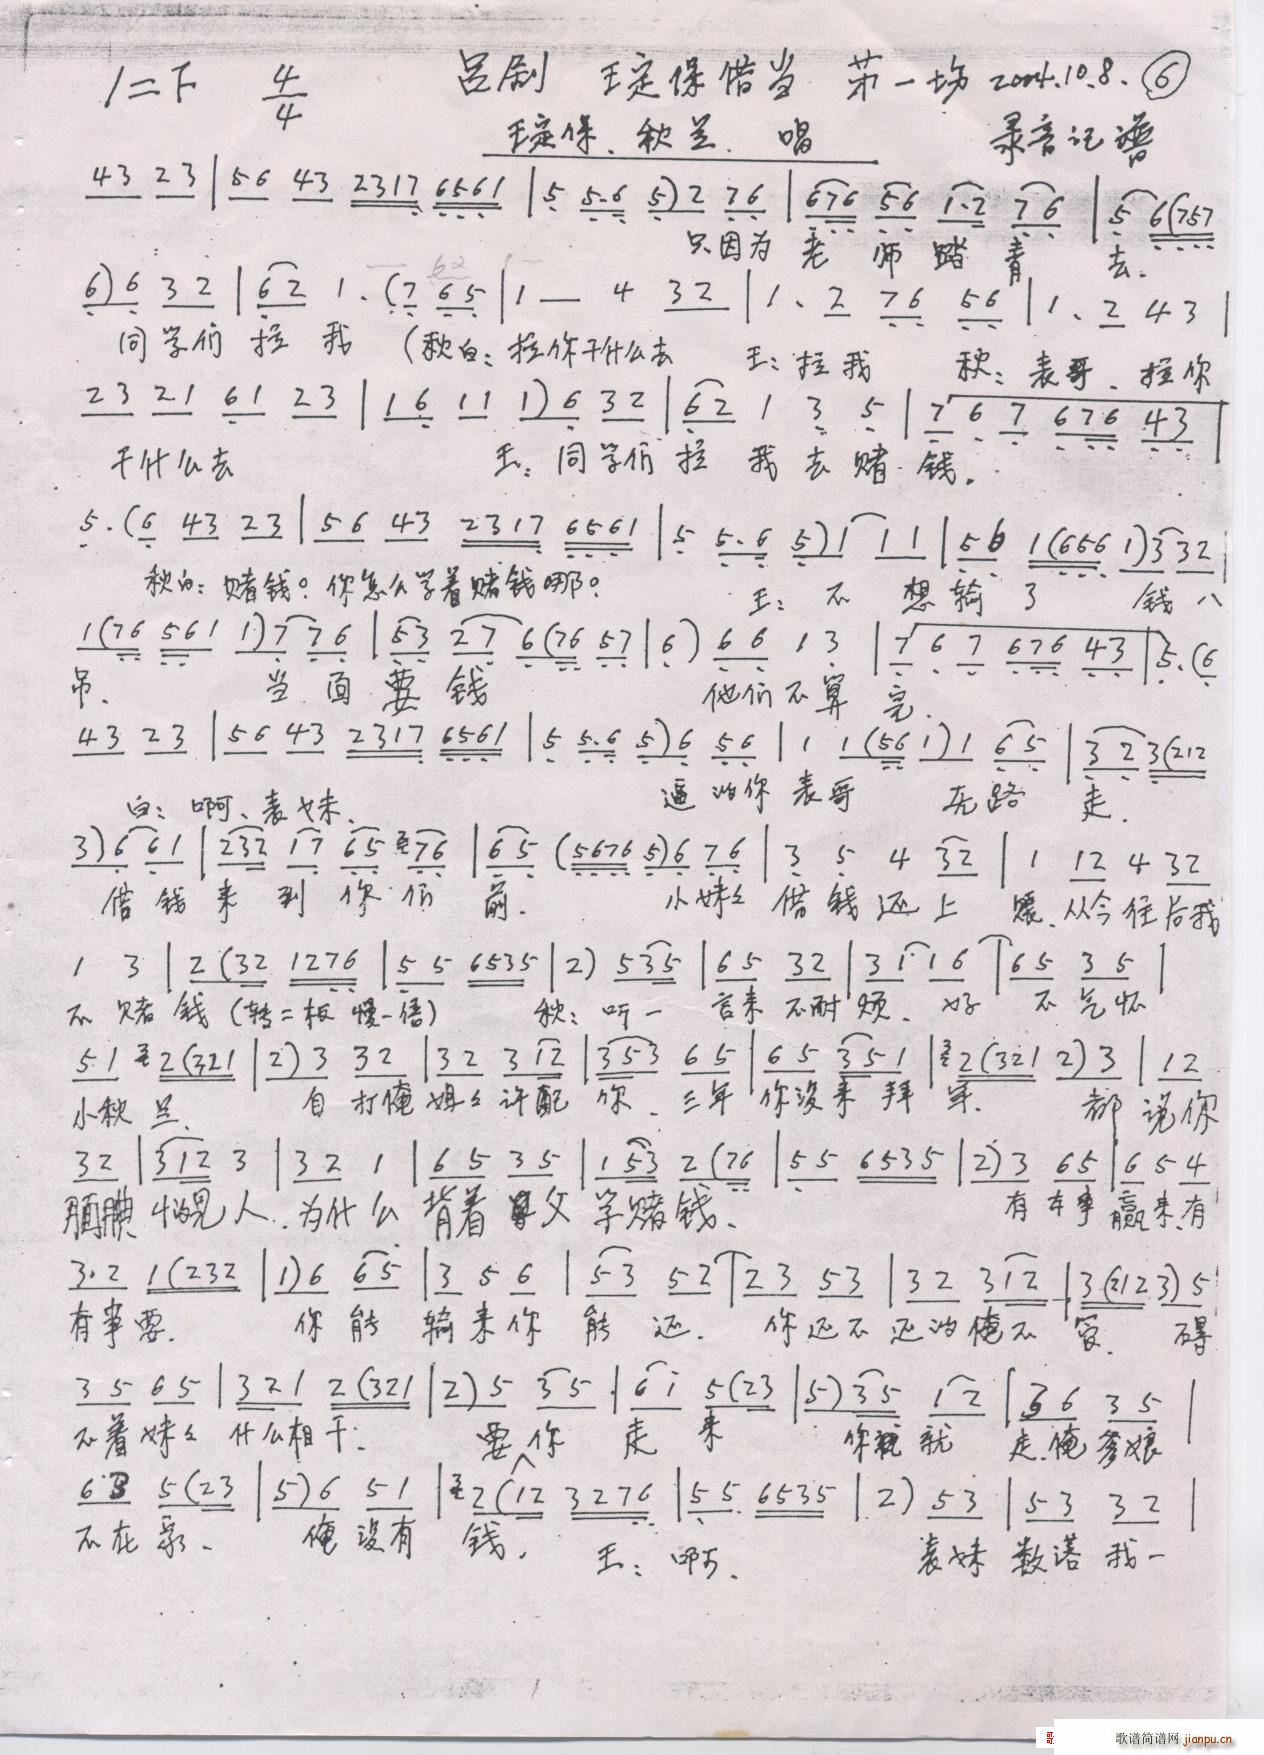 1=F 4/4 吕剧 王定保借当 第一场 2004.10.8. ⑥
王定保、秋兰、唱 录音记谱
43 23 | 56 43 2317 6561 | 5 5.6 5) 2 76 | 676 56 1.2 76 | 5 6(757
只因为 老 师 踏 青 去.
6) 6 32 | 62 1. (7 65 | 1 — 4 32 | 1. 2 76 56 | 1. 2 43 |
同学们 拉 我 (秋白: 拉你干什么去 王: 拉我 秋: 表哥、拉你
23 21 61 23 | 16 11 1) 6 32 | 62 1 3 5 | 7 6 7 676 43 |
干什么去 王: 同学们 拉 我 去 赌 钱.
5. (6 43 23 | 56 43 2317 6561 | 5 5.6 5) 1 11 | 56 1(656 1) 3 32
秋白: 赌钱? 你怎么学着赌钱哪? 王: 不 想 输 了 钱 八
1(76 561 1) 7 76 | 53 27 6(76 57 | 6) 66 1 3 | 7 6 7 676 43 | 5. (6
吊. 当 面 要 钱 他们 不 算 完.
43 23 | 56 43 2317 6561 | 5 5.6 5) 6 56 | 1 1(56 1) 1 65 | 32 3(212
白: 啊、表妹. 逼的你 表哥 无路 走.
3) 6 61 | 232 17 65 76 | 65 (5676 5) 6 76 | 3 5 4 32 | 1 12 4 32
借 钱 来 到 你 们 前. 小妹妹 借 钱 还 上 账. 从今往后我
1 3 | 2(32 1276 | 55 6535 | 2) 535 | 65 32 | 31 16 | 65 35 |
不 赌 钱 (转二板 慢一倍) 秋: 听一 言来 不耐 烦. 好 不 气坏
51 2(321 | 2) 3 32 | 32 312 | 353 65 | 65 351 | 2(321 2) 3 | 12
小秋 兰. 自 打俺 姐姐 许配 你. 三年 你没来 拜 年. 都 说你
32 | 312 3 | 32 1 | 65 35 | 153 2(76 | 55 6535 | 2) 3 65 | 65 4
腼腆 怕见 人. 为什 么 背着 父 学赌 钱. 有 本事 赢来. 有
3.2 1(232 | 1) 6 65 | 3 5 6 | 53 52 | 23 53 | 32 312 | 3(212 3) 5
有事 要. 你 能 输来你 能 还. 你还不 还的俺不 管. 碍
35 65 | 321 2(321 | 2) 5 35 | 61 5(23 | 5) 35 12 | 36 35 |
不着 妹妹 什么相 干. 要 你 走 来 你就 走. 俺 爹娘
63 5(23 | 5) 6 51 | 2(12 3276 | 55 6535 | 2) 53 | 53 32 |
不在 家. 俺 没有 钱. 王: 啊. 表妹 数落 我一
歌谱简谱网 jianpu.cn